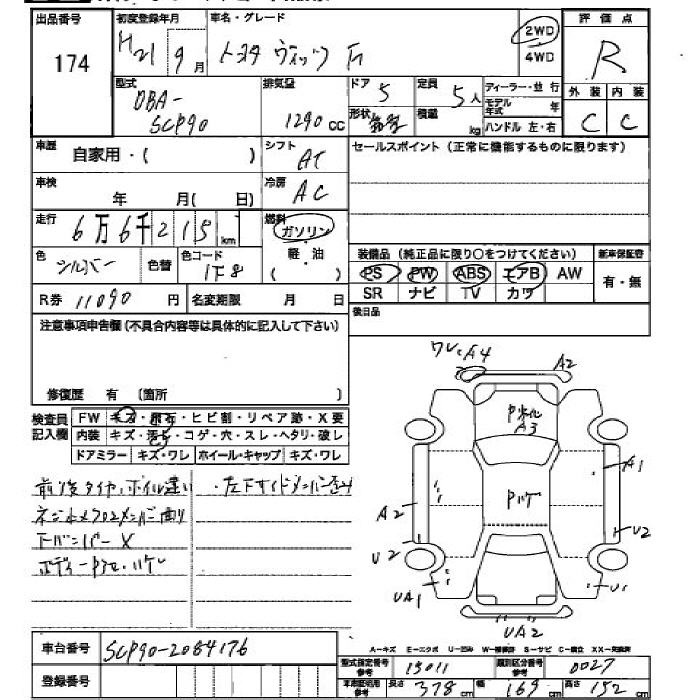 出品番号 初度登録年月 車名・グレード 2WD 評価点
174 H21 9月 トヨタ ヴィッツ F 4WD R
型式 排気量 ドア 定員 ディーラー・並行 外装 内装
DBA- 5 5人 モデル年式 年
SCP90 1290cc 形状 積載 kg ハンドル 左・右 C C
車歴 自家用・( ) シフト AT セールスポイント(正常に機能するものに限ります)
車検 年 月( 日) 冷房 AC
走行 6万6千215km 燃料 ガソリン
色 シルバー 色替 色コード 1F8 軽・油 ( ) 装備品(純正品に限り○をつけてください) 新車保証書
PS PW ABS エアB AW 有・無
R券 11090円 名変期限 月 日 SR ナビ TV カワ
注意事項申告欄(不具合内容等は具体的に記入して下さい) 後日品
修復歴 有 (箇所 )
ワレ・A4 A2
検査員記入欄 FW キズ・飛石・ヒビ割・リペア跡・X要
内装 キズ・汚れ・コゲ・穴・スレ・ヘタリ・破レ
ドアミラー キズ・ワレ ホイール・キャップ キズ・ワレ
A3
前後タイヤ・ホイル違い ・左下サイドメンバー歪み
A1
Pハゲ
A2
U2
下バンパーX
U2
UA1 U1
UA2
車台番号 SCP90-2084176
A-キズ E-エクボ U-凹み W-補修跡 S-サビ C-腐食 XX-交換済
登録番号
型式指定番号 参考 15011 類別区分番号 参考 0027
車検証記載 参考 長さ 378cm 幅 169cm 高さ 152cm